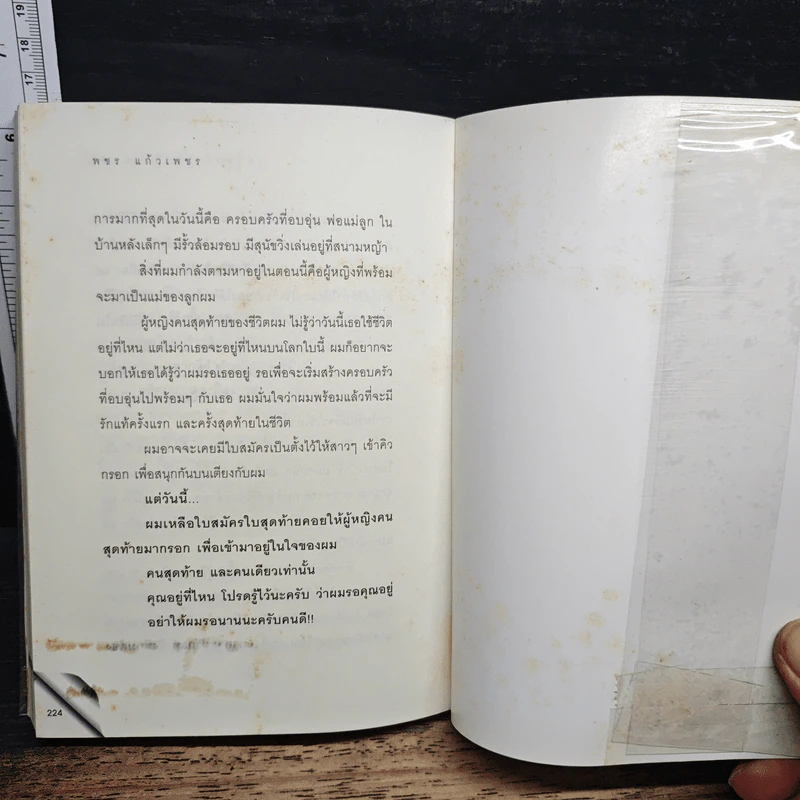 19
18
17
7
6
พชร แก้วเพชร
การมากที่สุดในวันนี้คือ ครอบครัวที่อบอุ่น พ่อแม่ลูก ใน
บ้านหลังเล็กๆ มีรั้วล้อมรอบ มีสุนัขวิ่งเล่นอยู่ที่สนามหญ้า
สิ่งที่ผมกำลังตามหาอยู่ในตอนนี้คือผู้หญิงที่พร้อม
จะมาเป็นแม่ของลูกผม
ผู้หญิงคนสุดท้ายของชีวิตผม ไม่รู้ว่าวันนี้เธอใช้ชีวิต
อยู่ที่ไหน แต่ไม่ว่าเธอจะอยู่ที่ไหนบนโลกใบนี้ ผมก็อยากจะ
บอกให้เธอได้รู้ว่าผมรอเธออยู่ รอเพื่อจะเริ่มสร้างครอบครัว
ที่อบอุ่นไปพร้อมๆ กับเธอ ผมมั่นใจว่าผมพร้อมแล้วที่จะมี
รักแท้ครั้งแรก และครั้งสุดท้ายในชีวิต
ผมอาจจะเคยมีใบสมัครเป็นตั้งไว้ให้สาวๆ เข้าคิว
กรอก เพื่อสนุกกันบนเตียงกับผม
แต่วันนี้...
ผมเหลือใบสมัครใบสุดท้ายคอยให้ผู้หญิงคน
สุดท้ายมากรอก เพื่อเข้ามาอยู่ในใจของผม
คนสุดท้าย และคนเดียวเท่านั้น
คุณอยู่ที่ไหน โปรดรู้ไว้นะครับ ว่าผมรอคุณอยู่
อย่าให้ผมรอนานนะครับคนดี!!
224